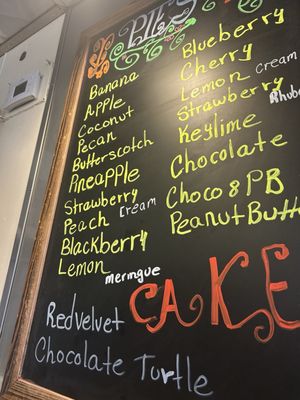 PIES
Banana
Apple
Coconut
Pecan
Butterscotch
Pineapple
Strawberry
Peach cream
Blackberry
Lemon
meringue
Blueberry
Cherry
Lemon cream
Strawberry
Rhub
Keylime
Chocolate
Choco & PB
Peanut Butt
CAKE
Red velvet
Chocolate Turtle